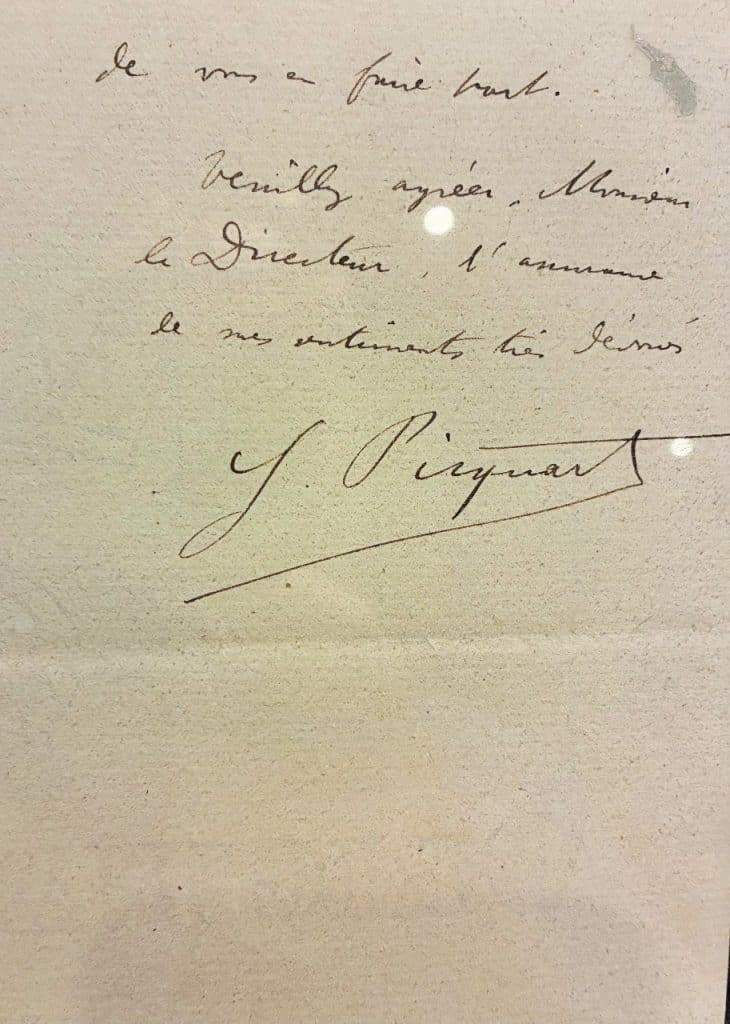 de vous en faire part.
Veuillez agréer, Monsieur
le Directeur, l'assurance
de mes sentiments très dévoués
G. Picquart